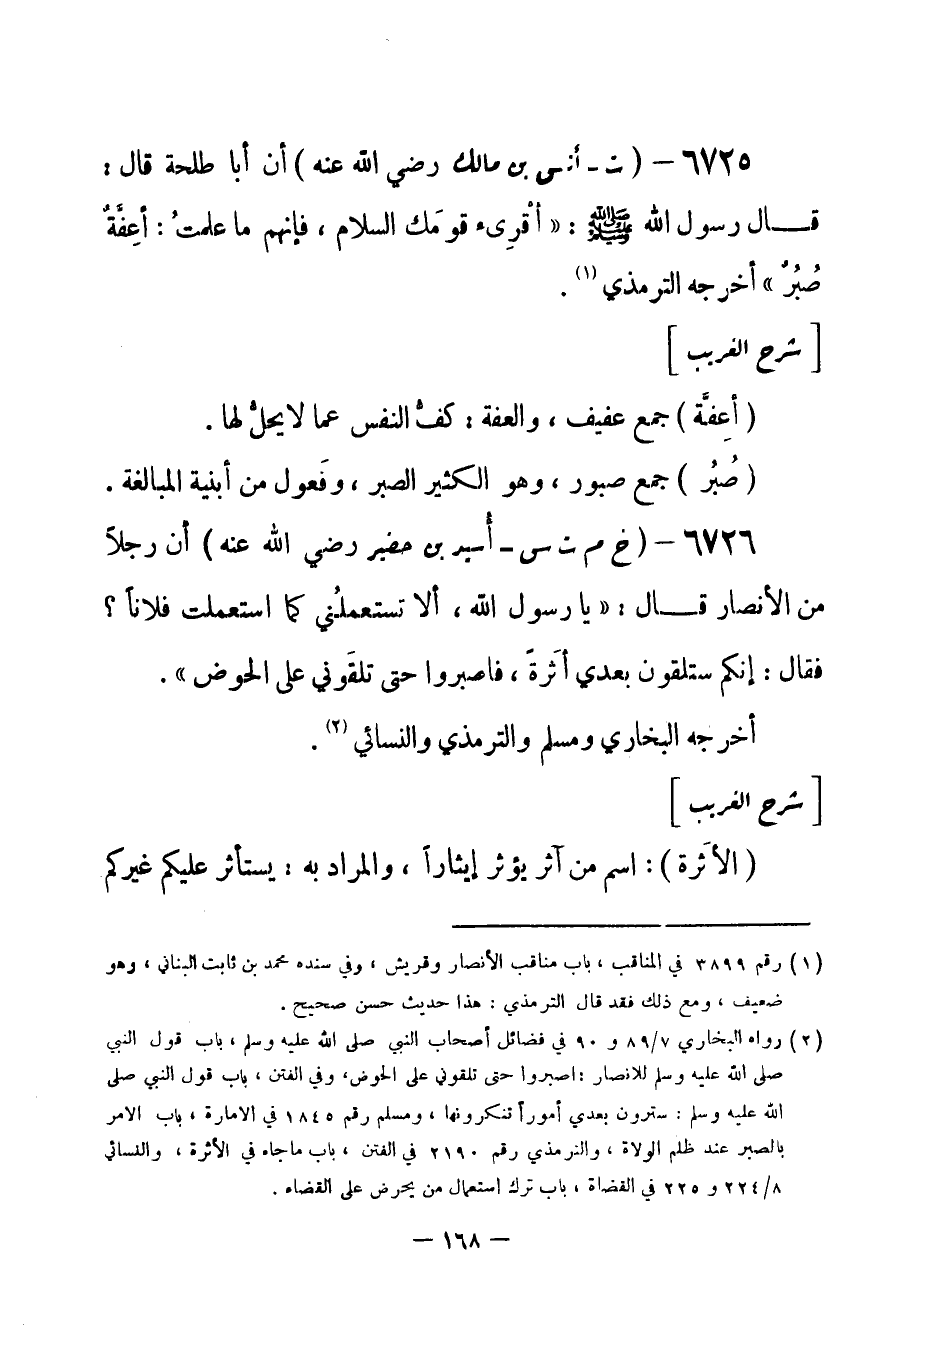 ٦٧٢٥ – ( ت ـ أنس بن مالك رضي الله عنه ) أن أبا طلحة قال :
قـــال رسول الله ﷺ : « أقْرِىء قومَك السلام ، فإنهم ما علمتُ : أعِفَّةٌ
صُبُرٌ » أخرجه الترمذي (١) .
[ شرح الغريب ]
( أعِفَّة ) جمع عفيف ، والعفة : كفُّ النفس عما لا يحلُّ لها .
( صُبُر ) جمع صبور ، وهو الكثير الصبر ، وفَعول من أبنية المبالغة .
٦٧٢٦ – ( خ م ت س ـ أُسيد بن حضير رضي الله عنه ) أن رجلاً
من الأنصار قـــال : « يا رسول الله ، ألا تستعملُني كما استعملت فلاناً ؟
فقال : إنكم ستلقون بعدي أَثَرةً ، فاصبروا حتى تلقَوني على الحوض » .
أخرجه البخاري ومسلم والترمذي والنسائي (٢) .
[ شرح الغريب ]
( الأَثَرة ) : اسم من آثر يؤثر إيثاراً ، والمراد به : يستأثر عليكم غيركم
(١) رقم ٣٨٩٩ في المناقب ، باب مناقب الأنصار وقريش ، وفي سنده محمد بن ثابت البناني ، وهو
ضعيف ، ومع ذلك فقد قال الترمذي : هذا حديث حسن صحيح .
(٢) رواه البخاري ٨٩/٧ و ٩٠ في فضائل أصحاب النبي صلى الله عليه وسلم ، باب قول النبي
صلى الله عليه وسلم للانصار : اصبروا حتى تلقوني على الحوض، وفي الفتن ، باب قول النبي صلى
الله عليه وسلم : سترون بعدي أموراً تنكرونها ، ومسلم رقم ١٨٤٥ في الامارة ، باب الامر
بالصبر عند ظلم الولاة ، والترمذي رقم ٢١٩٠ في الفتن ، باب ماجاء في الأثرة ، والنسائي
٢٢٤/٨ و ٢٢٥ في القضاة ، باب ترك استعمال من يحرض على القضاء .
– ١٦٨ –